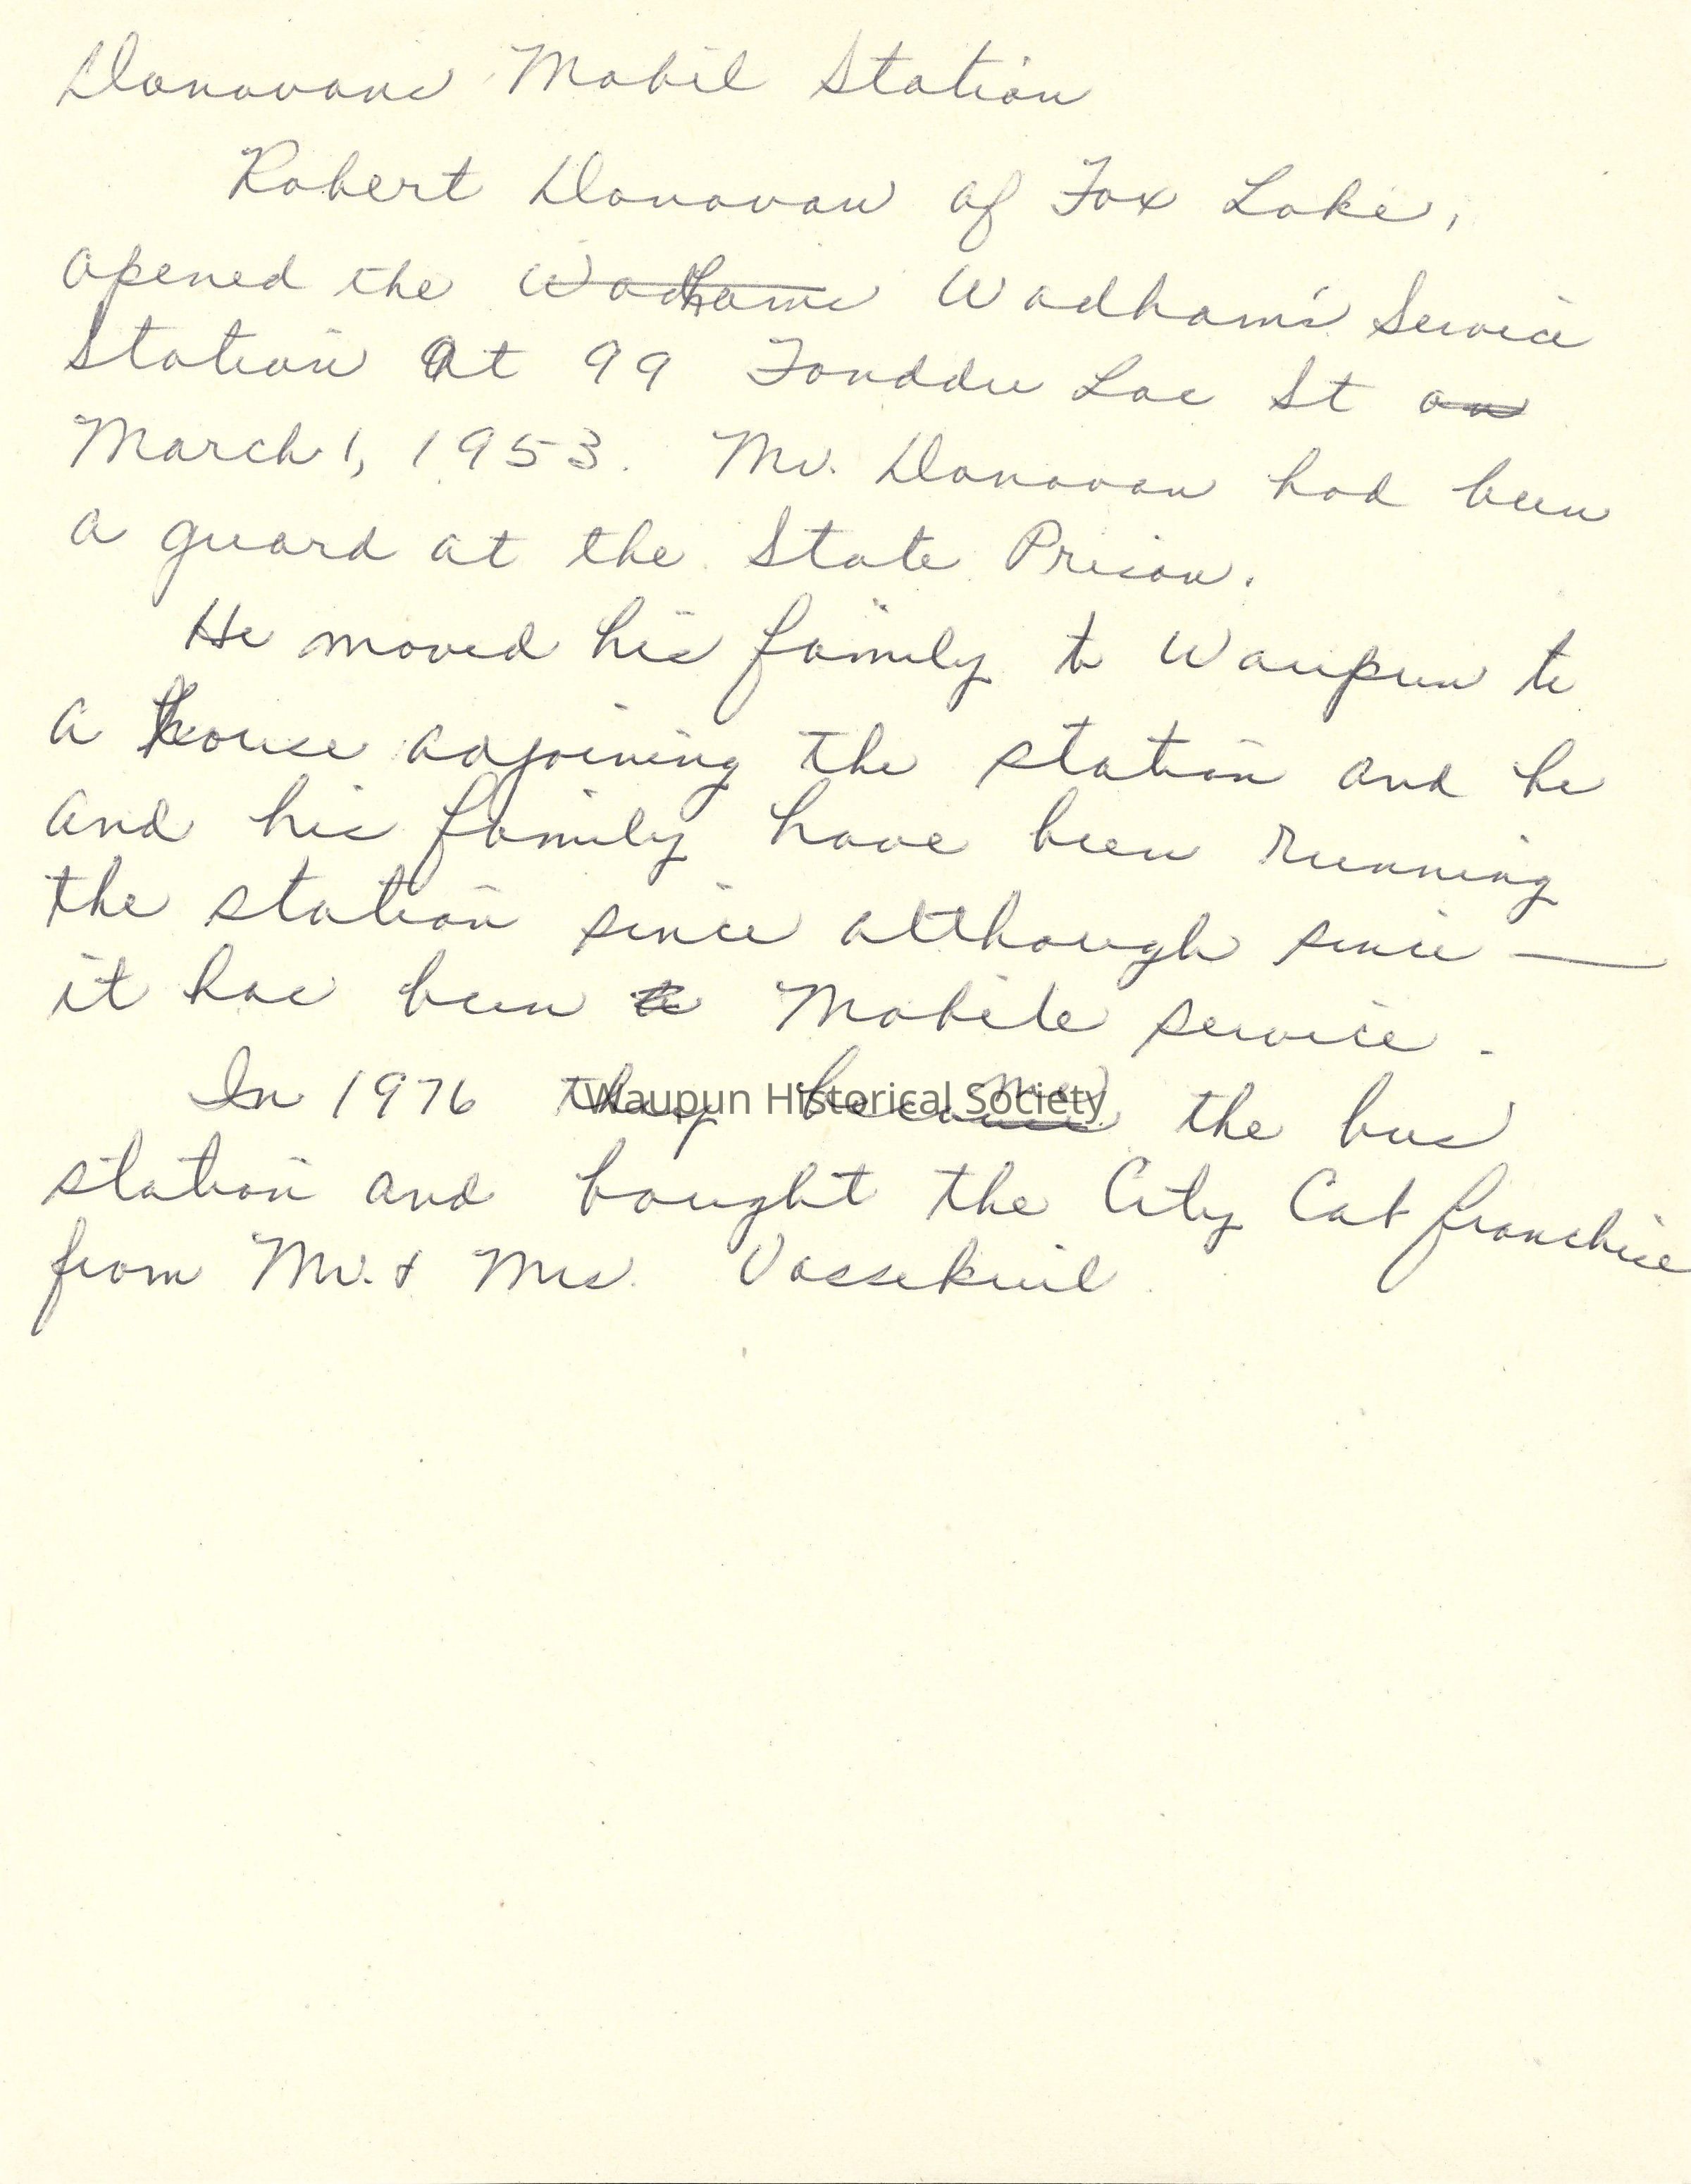 Donovans Mobil Station
Robert Donovan of Fox Lake,
opened the Wadhams Wadham's Service
Station at 99 Fonddu Lac St on
March 1, 1953. Mr. Donovan had been
a guard at the State Prison.
He moved his family to Waupun to
a house adjoining the station and he
and his family have been running
the station since although since —
it has been a Mobile service.
In 1976 they become the bus
Waupun Historical Society
station and bought the City Cab franchise
from Mr. & Mrs. Vossekuil